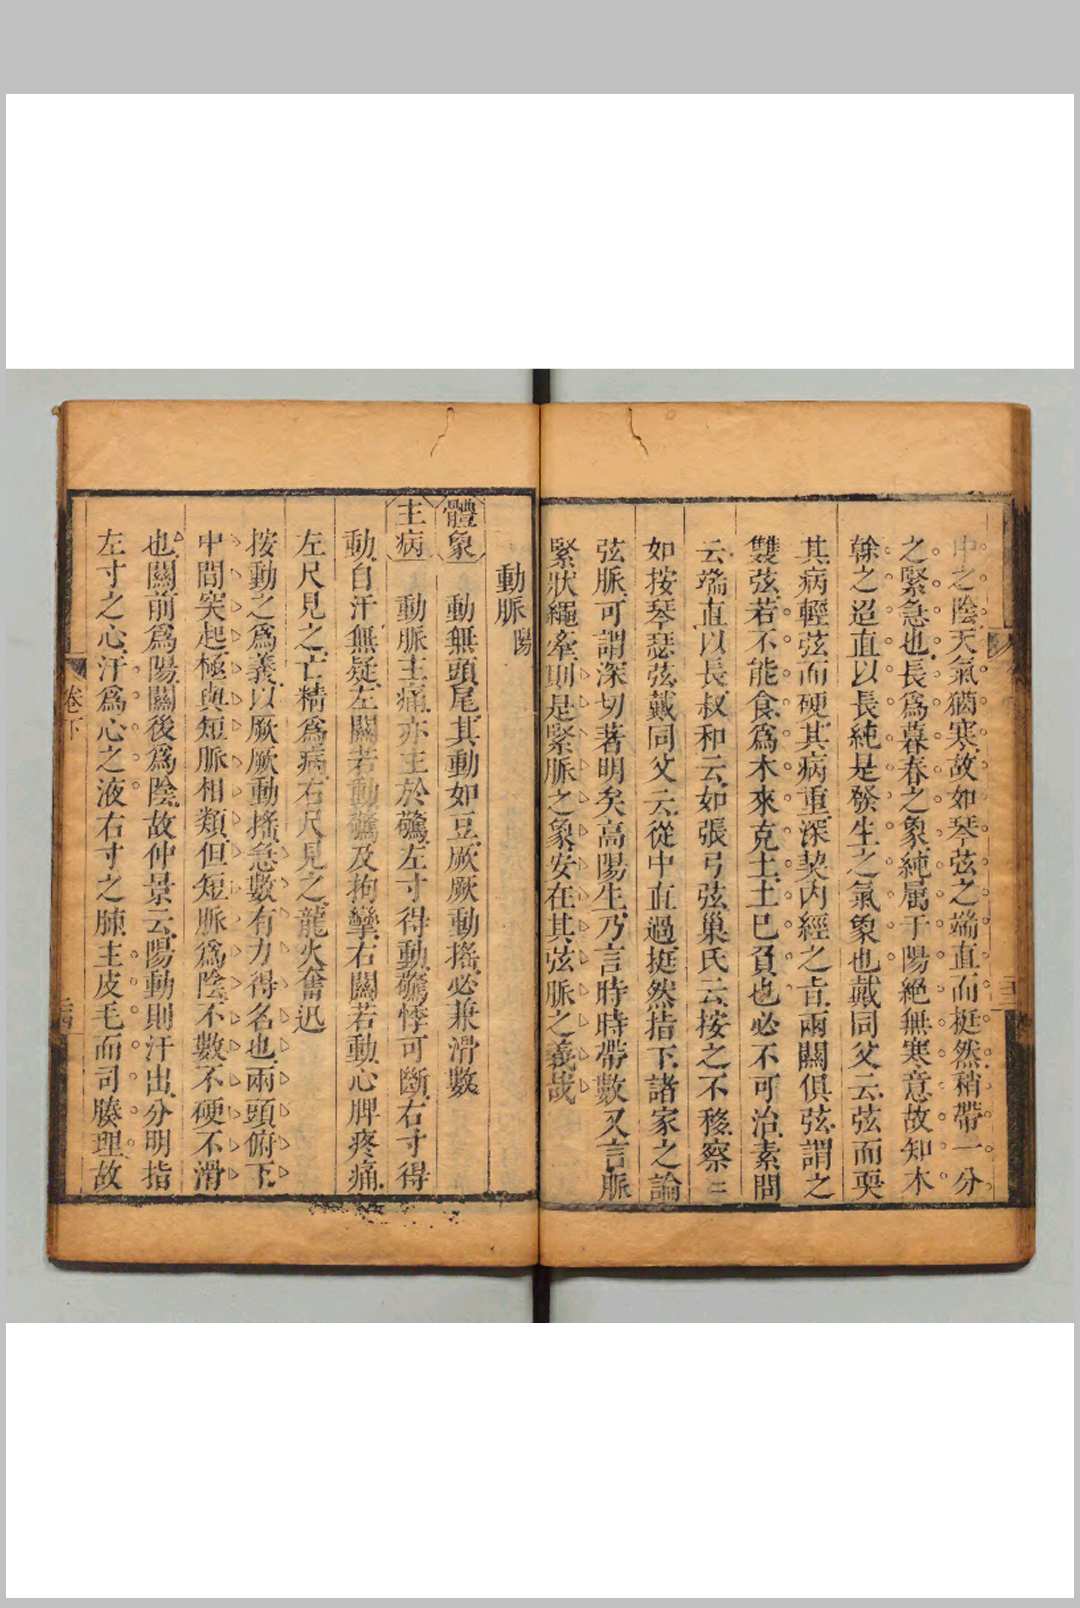 中之陰天氣猶寒故如琴弦之端直而挺然稍帶一分
之緊急也長爲暮春之象純属于陽絶無寒意故知木
幹之迢直以長純是發生之氣象也戴同父云弦而耎
其病輕弦而硬其病重深契内經之旨兩關俱弦謂之
雙弦若不能食爲木來克土土巳負也必不可治素問
云端直以長叔和云如張弓弦巢氏云按之不移察二
如按琴瑟弦戴同父云從中直過挺然指下諸家之論
弦脈可謂深切著明矣高陽生乃言時時帶數又言脈
緊狀繩牽則是緊脈之象安在其弦脈之義哉
動脈陽
體象 動無頭尾其動如豆厥厥動搖必兼滑數
主病 動脈主痛亦主於驚左寸得動驚悸可斷右寸得
動自汗無疑左關若動驚及拘攣右關若動心脾疼痛
左尺見之亡精爲病右尺見之龍火奮迅
按動之爲義以厥厥動搖急數有力得名也兩頭俯下
中間突起極與短脈相類但短脈爲陰不數不硬不滑
也關前爲陽關後爲陰故仲景云陽動則汗出分明指
左寸之心汗爲心之液右寸之肺主皮毛而司腠理故
卷下
二十四